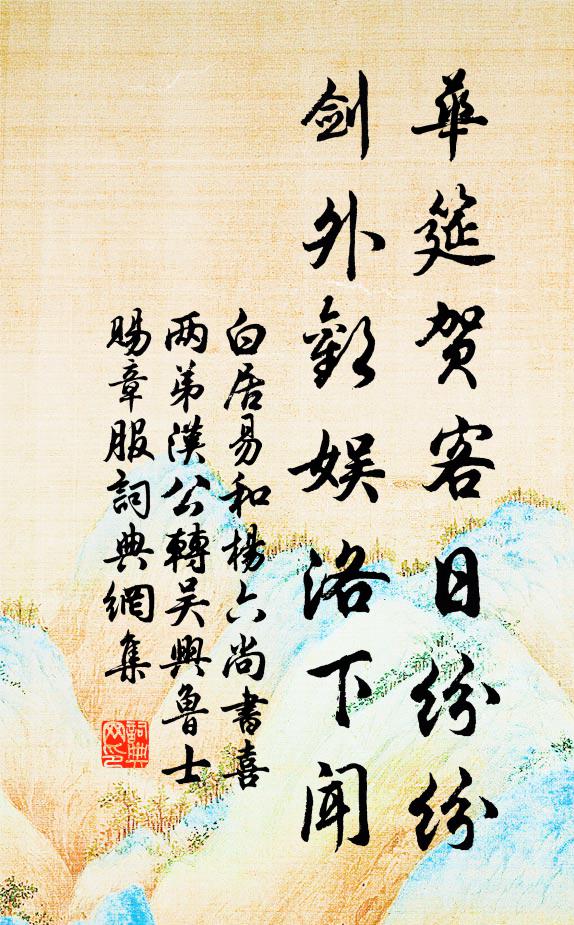 華筵賀客日紛紛
剑外歡娱洛下聞
白居易和楊六尚書喜
两弟漢公轉吴興魯士
賜章服詞典網集
詞典网印